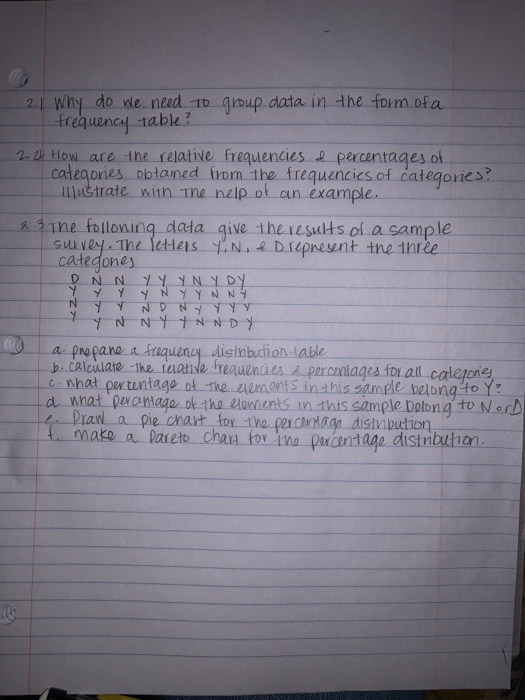 2.1 Why do we need to group data in the form of a
frequency table?
2.2 How are the relative frequencies & percentages of
categories obtained from the frequencies of categories?
Illustrate with the help of an example.
2.3 The following data give the results of a sample
survey. The letters Y, N, & D represent the three
categories
D N N Y Y Y N Y D Y
Y Y Y Y N Y Y N N Y
N Y Y N D N Y Y Y Y
Y Y N N Y Y N N D Y
a. prepare a frequency distribution table
b. calculate the relative frequencies & percentages for all categories
c. what percentage of the elements in this sample belong to Y?
d. what percentage of the elements in this sample belong to N or D
e. Draw a pie chart for the percentage distribution
f. make a Pareto chart for the percentage distribution.